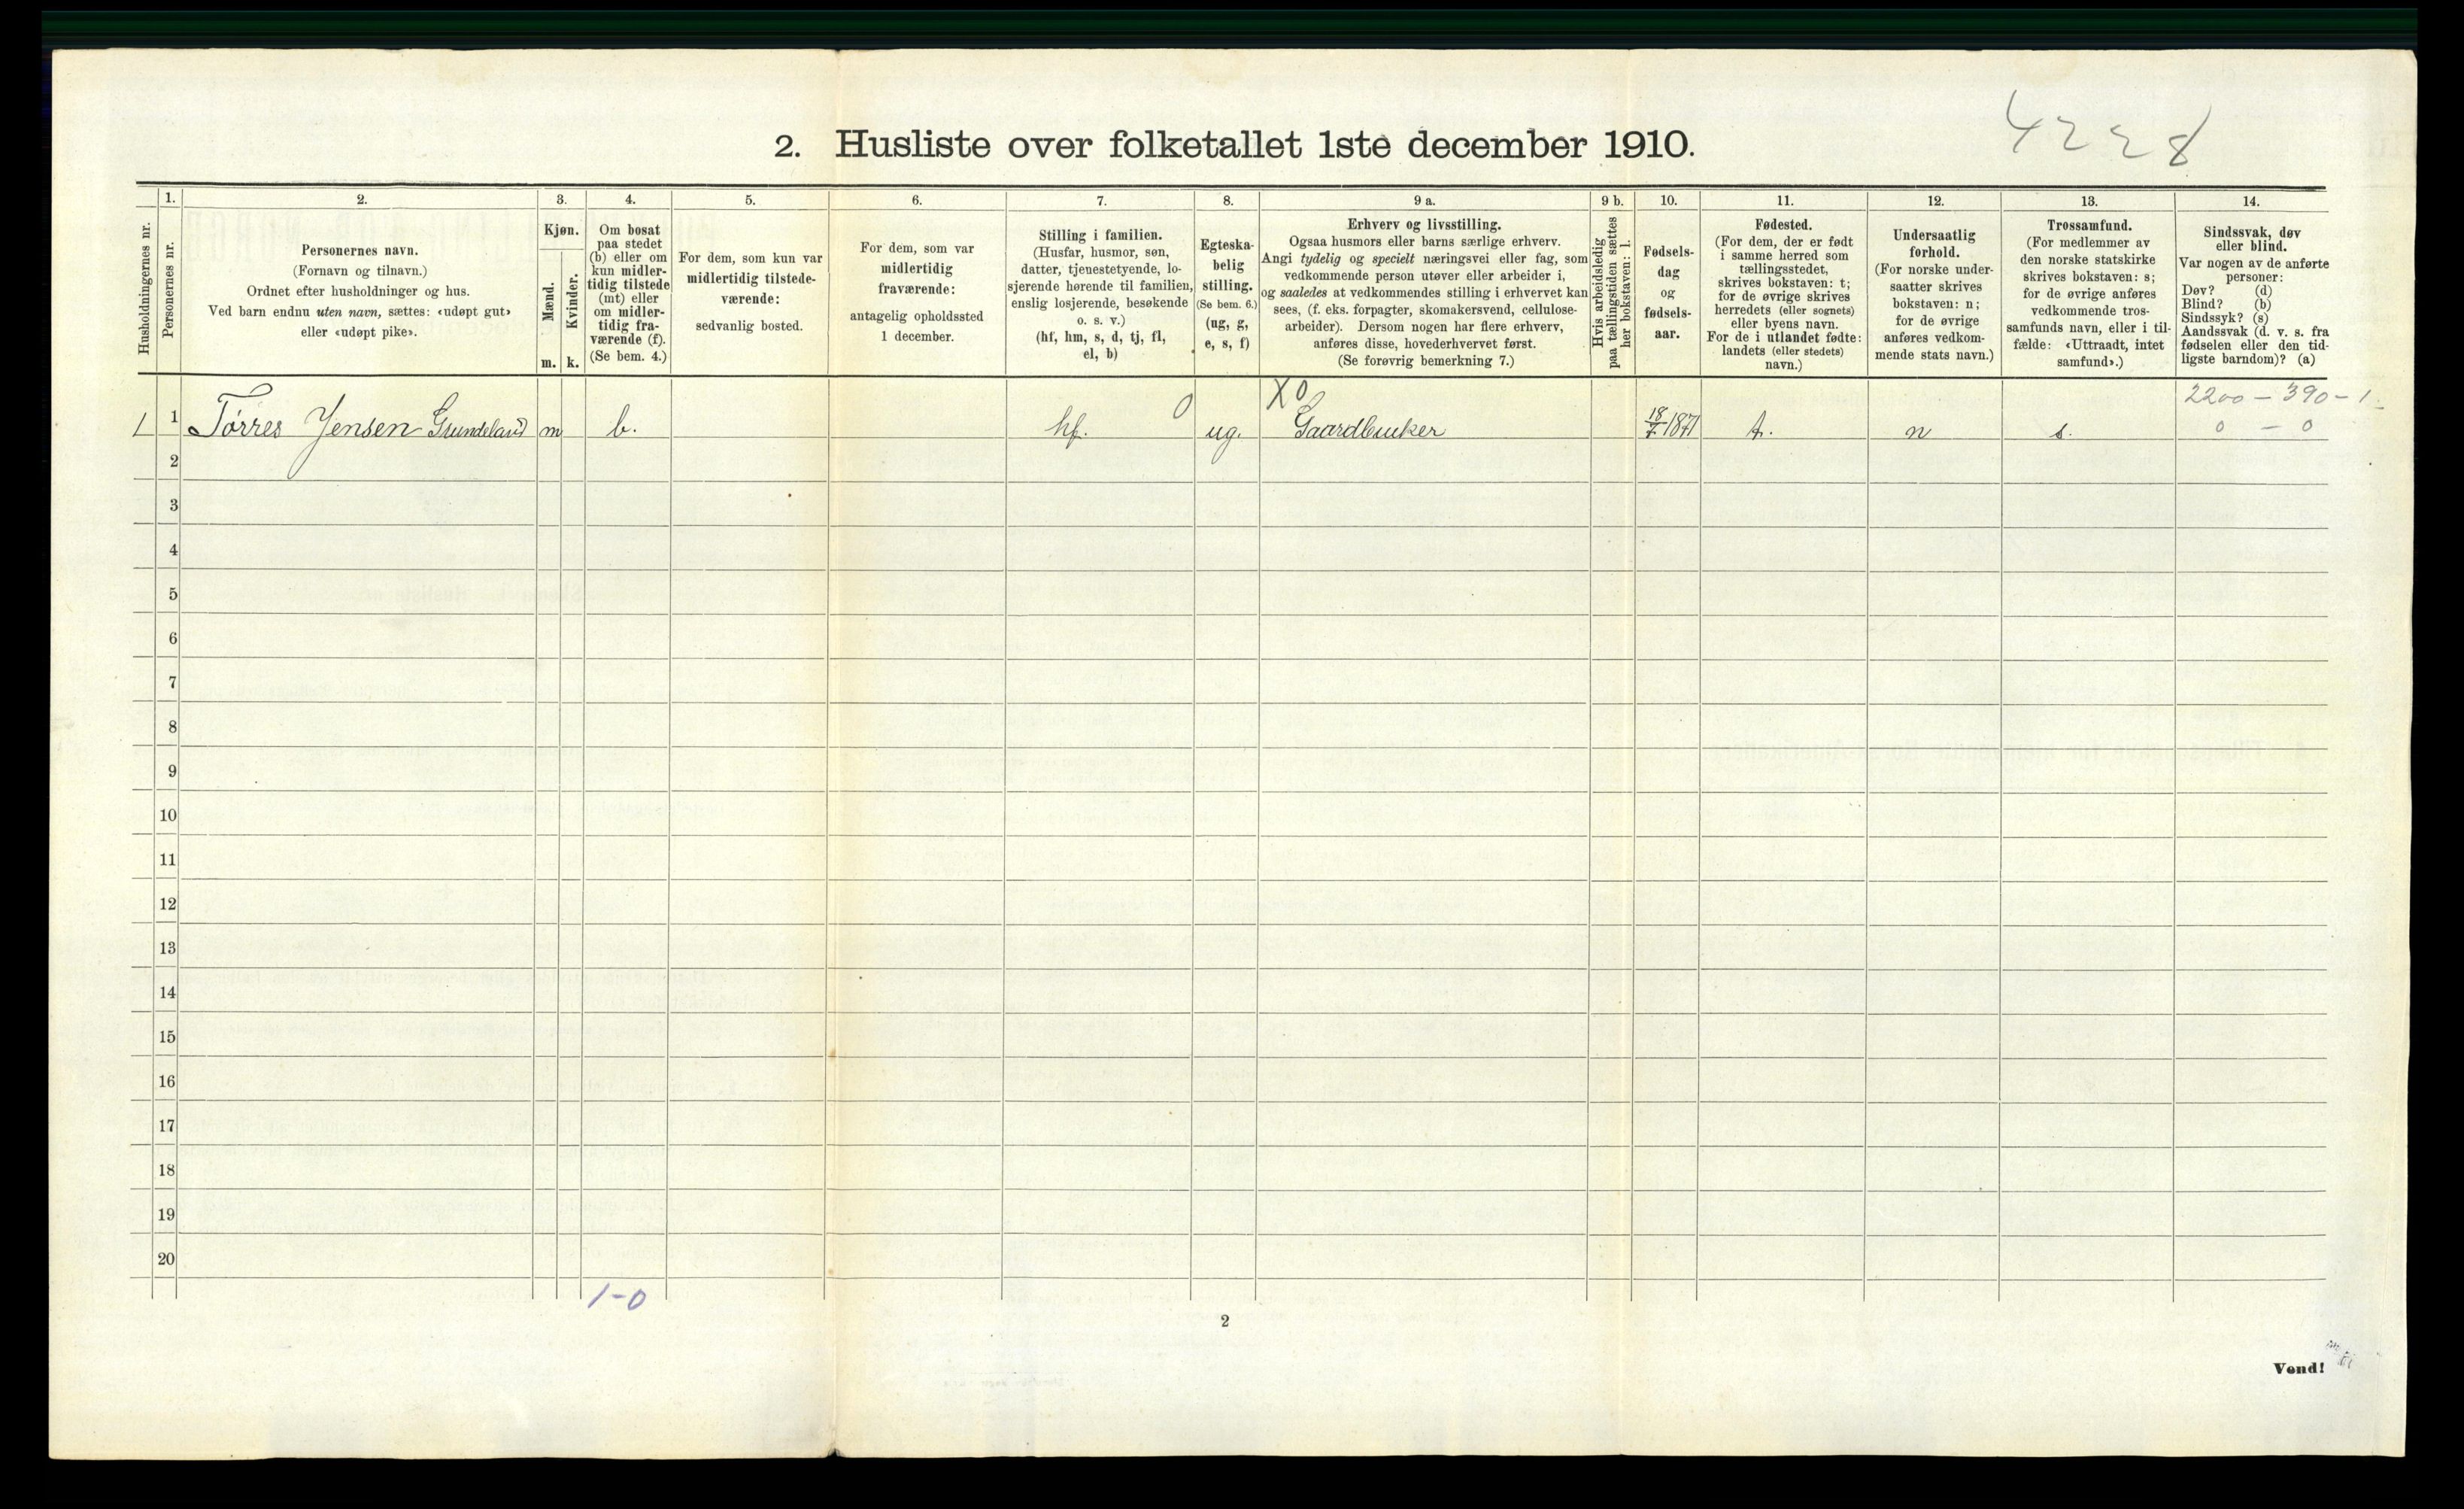 4228
2. Husliste over folketallet 1ste december 1910.
Husholdningernes nr.
1.
Personernes nr.
2.
Personernes navn.
(Fornavn og tilnavn.)
Ordnet efter husholdninger og hus.
Ved barn endnu uten navn, sættes: «udøpt gut»
eller «udøpt pike».
3.
Kjøn.
Mænd.
m.
Kvinder.
k.
4.
Om bosat
paa stedet
(b) eller om
kun midler-
tidig tilstede
(mt) eller
om midler-
tidig fra-
værende (f).
(Se bem. 4.)
5.
For dem, som kun var
midlertidig tilstede-
værende:
sedvanlig bosted.
6.
For dem, som var
midlertidig
fraværende:
antagelig opholdssted
1 december.
7.
Stilling i familien.
(Husfar, husmor, søn,
datter, tjenestetyende, lo-
sjerende hørende til familien,
enslig losjerende, besøkende
o. s. v.)
(hf, hm, s, d, tj, fl,
el, b)
8.
Egteska-
belig
stilling.
(Se bem. 6.)
(ug, g,
e, s, f)
9 a.
Erhverv og livsstilling.
Ogsaa husmors eller barns særlige erhverv.
Angi tydelig og specielt næringsvei eller fag, som
vedkommende person utøver eller arbeider i,
og saaledes at vedkommendes stilling i erhvervet kan
sees, (f. eks. forpagter, skomakersvend, cellulose-
arbeider). Dersom nogen har flere erhverv,
anføres disse, hovederhvervet først.
(Se forøvrig bemerkning 7.)
9 b.
Hvis arbeidsledig
paa tællingstiden sættes
her bokstaven: l.
10.
Fødsels-
dag
og
fødsels-
aar.
11.
Fødested.
(For dem, der er født
i samme herred som
tællingsstedet,
skrives bokstaven: t;
for de øvrige skrives
herredets (eller sognets)
eller byens navn.
For de i utlandet fødte:
landets (eller stedets)
navn.)
12.
Undersaatlig
forhold.
(For norske under-
saatter skrives
bokstaven: n;
for de øvrige
anføres vedkom-
mende stats navn.)
13.
Trossamfund.
(For medlemmer av
den norske statskirke
skrives bokstaven: s;
for de øvrige anføres
vedkommende tros-
samfunds navn, eller i til-
fælde: «Uttraadt, intet
samfund».)
14.
Sindssvak, døv
eller blind.
Var nogen av de anførte
personer:
Døv? (d)
Blind? (b)
Sindssyk? (s)
Aandssvak (d. v. s. fra
fødselen eller den tid-
ligste barndom)? (a)
X0 2200 - 390 - 1
1 1 Tørres Jensen Grundeland m b. hf. 0 ug. Gaardbruker 18/7 1871 t. n s. 0 - 0
2
3
4
5
6
7
8
9
10
11
12
13
14
15
16
17
18
19
20
1-0
2
Vend!